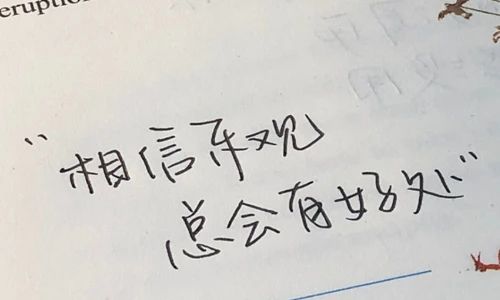 eruptio
“相信乐观
总会有好处”